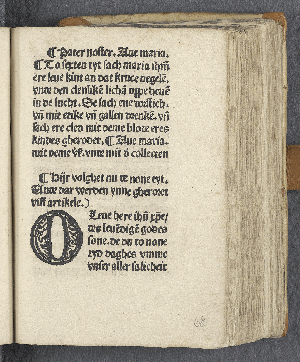 ¶ Pater noster. Aue maria.
¶ To sexten tyt sach maria ihm̄
ere leue kint an dat kruce negelē,
vnde den lichā vpheuē
in de lucht. Se sach ene
vn̄ mit etike vn̄ gallen drenkē. vn̄
sach ere cled mit deme blode eres
kindes gheroder. ¶ Aue maria.
mit deme vnde mit d' collecten
¶ Hijr volghet nu te none tyt,
vnde dar werden ynne gheroret
viff artikele.)
O Leue here ihū xp̄e,
des leuēdigē godes
sone. de du to none
tyd daghes vmme
vnser aller salicheit